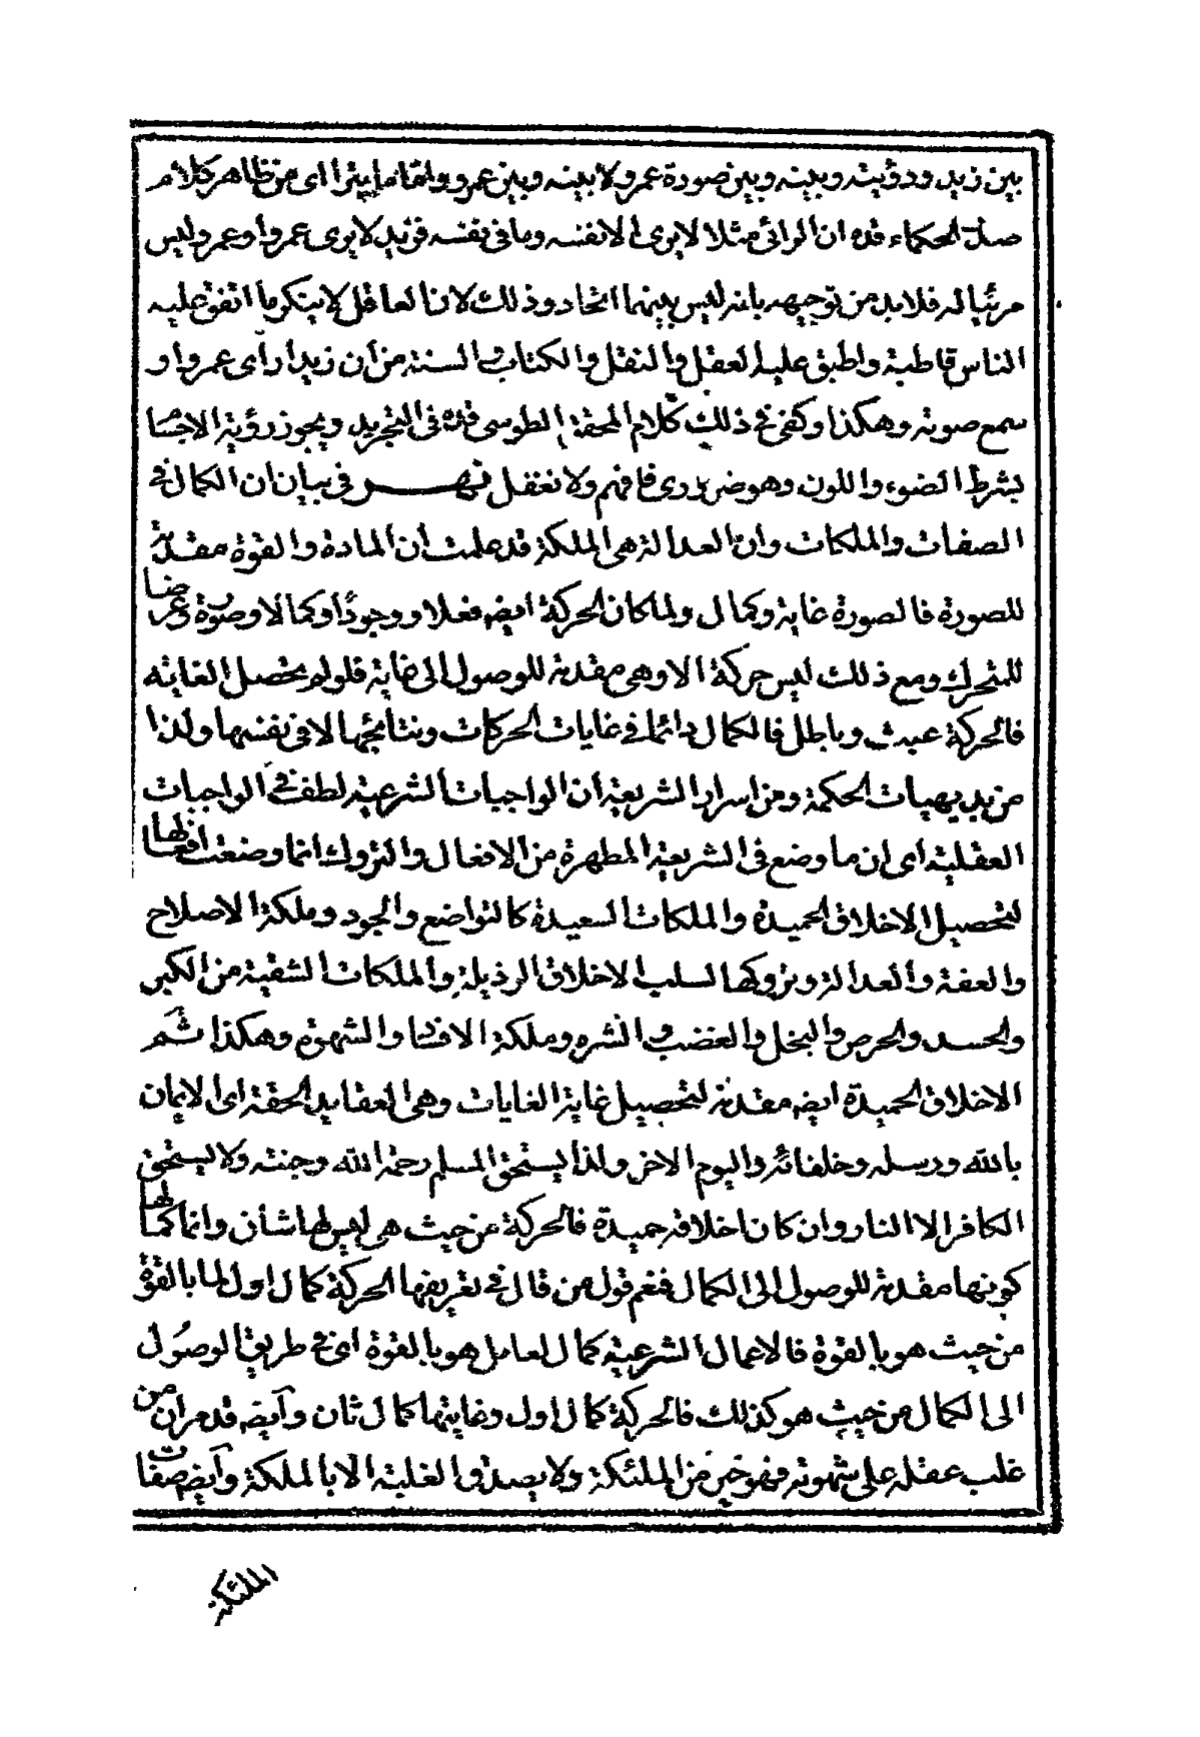 بين زيد ورؤيته وبينه وبين صورة عمرو لا بينه وبين عمرو واما ما يترا اى من ظاهر كلام
صدر الحكماء قده ان الرائى مثلا لا يرى الا نفسه وما فى نفسه فزيد لا يرى عمروا وعمرو ليس
مرئيا له فلابد من توجيهه بانه ليس بينهما اتحاد وذلك لان العاقل لا ينكر ما اتفق عليه
الناس قاطبة واطبق عليه العقل والنقل والكتاب والسنة من ان زيدا رأى عمروا و
سمع صوته وهكذا وكفى فى ذلك كلام المحقق الطوسى قده فى التجريد ويجوز رؤية الاجسا
بشرط الضوء واللون وهو ضرورى فافهم ولا تغفل نهر فى بيان ان الكمال فى
الصفات والملكات وان العدالة هى الملكة قد علمت ان المادة والقوة مقدمة
للصورة فالصورة غاية وكمال ولما كان الحركة ايضه فعلا ووجودًا وكمالا وصورة وعرضا
للمتحرك ومع ذلك ليس حركة الا وهى مقدمة للوصول الى غاية فلو لم يحصل الغاية
فالحركة عبث وباطل فالكمال دائما فى غايات الحركات ونتائجها لا فى نفسها ولذا
من بديهيات الحكمة ومن اسرار الشريعة ان الواجبات الشرعية لطف فى الواجبات
العقلية اى ان ما وضع فى الشريعة المطهرة من الافعال والتروك انما وضعت افعالها
لتحصيل الاخلاق الحميدة والملكات السعيدة كالتواضع والجود وملكة الاصلاح
والعفة والعدالة وتروكها لسلب الاخلاق الرذيلة والملكات الشقية من الكبر
والحسد والحرص والبخل والغضب والشره وملكة الافساد والشهوة وهكذا ثم
الاخلاق الحميدة ايضه مقدمة لتحصيل غاية الغايات وهى العقايد الحقة اى الايمان
بالله ورسله وخلفائه واليوم الاخر ولذا يستحق المسلم رحمة الله وجنته ولا يستحق
الكافر الا النار وان كان اخلاقه حميدة فالحركة من حيث هى ليس لها شأن وانما كمالها
كونها مقدمة للوصول الى الكمال فنعم قول من قال فى تعريفها الحركة كمال اول لما بالقوة
من حيث هو بالقوة فالاعمال الشرعية كمال لعامل هو بالقوة اى فى طريق الوصول
الى الكمال من حيث هو كذلك فالحركة كمال اول وغايتها كمال ثان وايضه قد مر ان من
غلب عقله على شهوته فهو خير من الملئكة ولا يصدق الغلبة الا بالملكة وايضه صفات
الملئكة